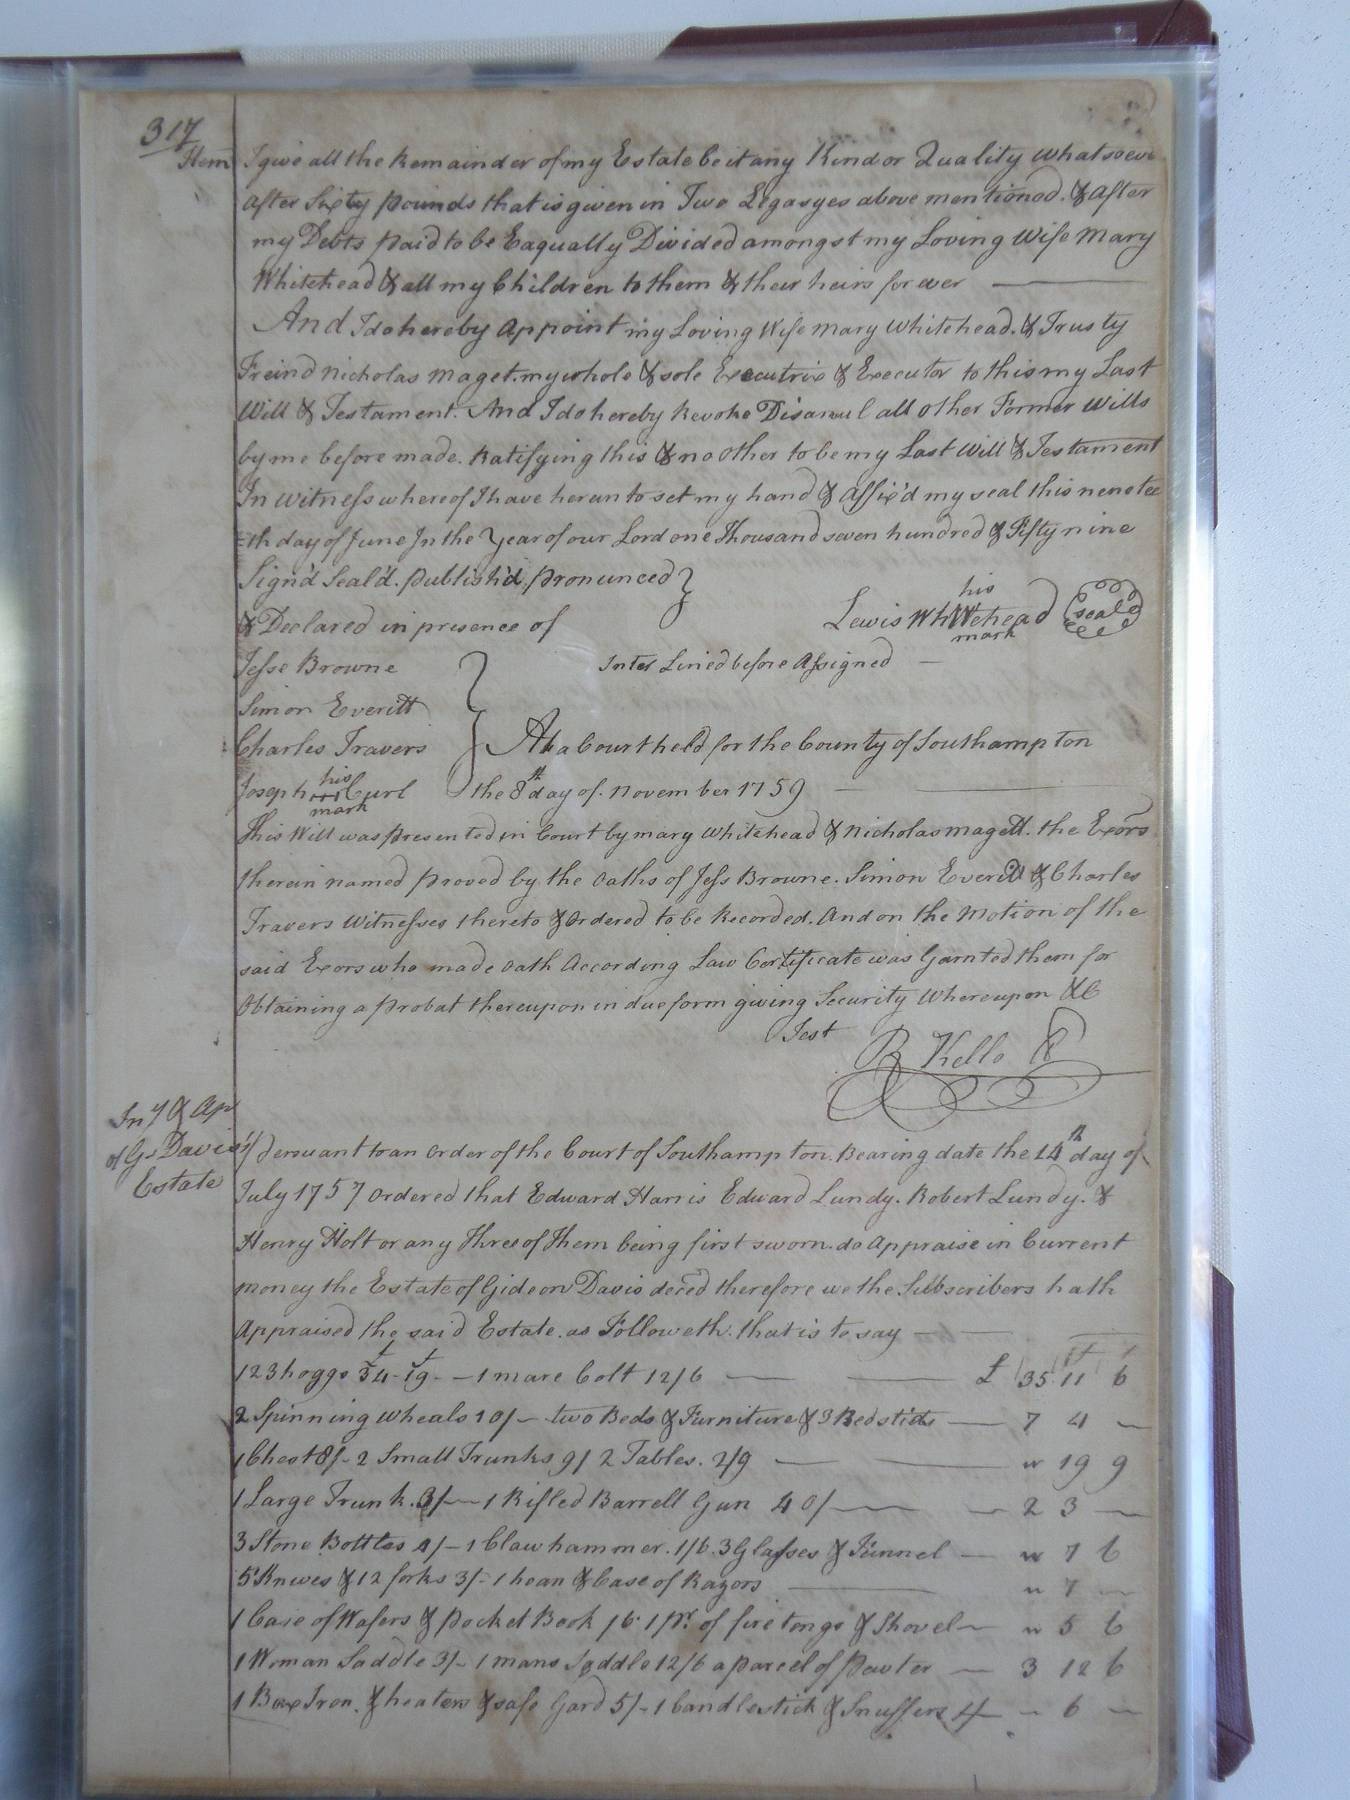 317
Item I give all the Remainder of my Estate be it any Kind or Quality whatsoever
after Sixty pounds that is given in Two Legasyes above mentioned. & after
my Debts paid to be Eaqually Divided amongst my Loving Wife Mary
Whitehead & all my Children to them & their heirs for ever
And I do hereby appoint my Loving Wife Mary Whitehead. & Trusty
Freind Nicholas Maget. my whole & sole Executrix & Executor to this my Last
Will & Testament. And I do hereby Revoke Disanul all other Former Wills
by me before made. Ratifying this & no other to be my Last Will & Testament
In Witness whereof I have hereunto set my hand & affix'd my seal this
th day of June In the Year of our Lord one Thousand seven hundred & Fifty nine
Sign'd Seal'd. publish'd. pronunced
& Declared in presence of
his
Lewis Whitehead seal
mark
Jesse Browne Inter Lined before Assigned
Simon Everitt
Charles Travers At a Court held for the County of Southampton
his
Joseph Curl the 8th day of. November 1759
mark
This Will was presented in Court by Mary Whitehead & Nicholas Magett. the Exors
therein named proved by the oaths of Jess Browne. Simon Everitt & Charles
Travers Witnesses thereto & ordered to be Recorded. And on the Motion of the
said Exors who made oath According Law Certificate was Garnted them for
Obtaining a probat thereupon in due form giving Security Whereupon &C
Test R Kello
In y & Ap
of G. Davis's
Estate
Persuant to an order of the Court of Southampton. Bearing date the 14th day of
July 1757 ordered that Edward Harris Edward Lundy. Robert Lundy. &
Henry Holt or any Three of Them being first sworn. do appraise in Current
money the Estate of Gideon Davis deced therefore we the Subscribers hath
Appraised the said Estate. as Followeth. that is to say
123 hoggs 34 19 - 1 mare Colt 12/6 £ 35 11 6
2 Spinning wheals 10/- two Beds & Furniture & 3 Bedstids 7 4 -
1 Chest 8/- 2 Small Trunks 9/ 2 Tables. 2/9 " 19 9
1 Large Trunk. 3/- 1 Rifled Barrell Gun 40/- 2 3 -
3 Stone Bottles 4/- 1 Claw hammer. 1/6. 3 Glasses & Funnel " 7 6
5 Knives & 12 forks 3/- 1 hoan & Case of Razors " 7 -
1 Case of Wafers & pocket Book /6. 1 pr. of fire tongs & Shovel " 5 6
1 Woman Saddle 3/- 1 mans Saddle 12/6 a parcel of Pewter 3 12 6
1 Box Iron. & heaters & safe Gard 5/- 1 Candlestick & Snuffers - 6 -